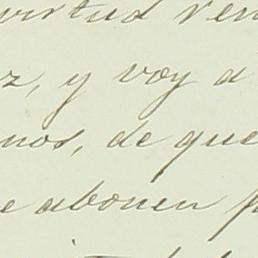 virtud ven
z, y voy a
nos, de que
e abonen p